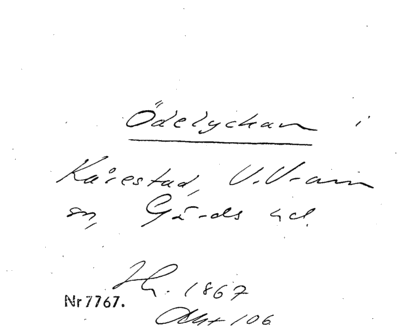 Ödelyckan i
Kårestad, V.Vram
sn, Gärds hd.
Jh. 1867
Nr 7767.
Akt 106